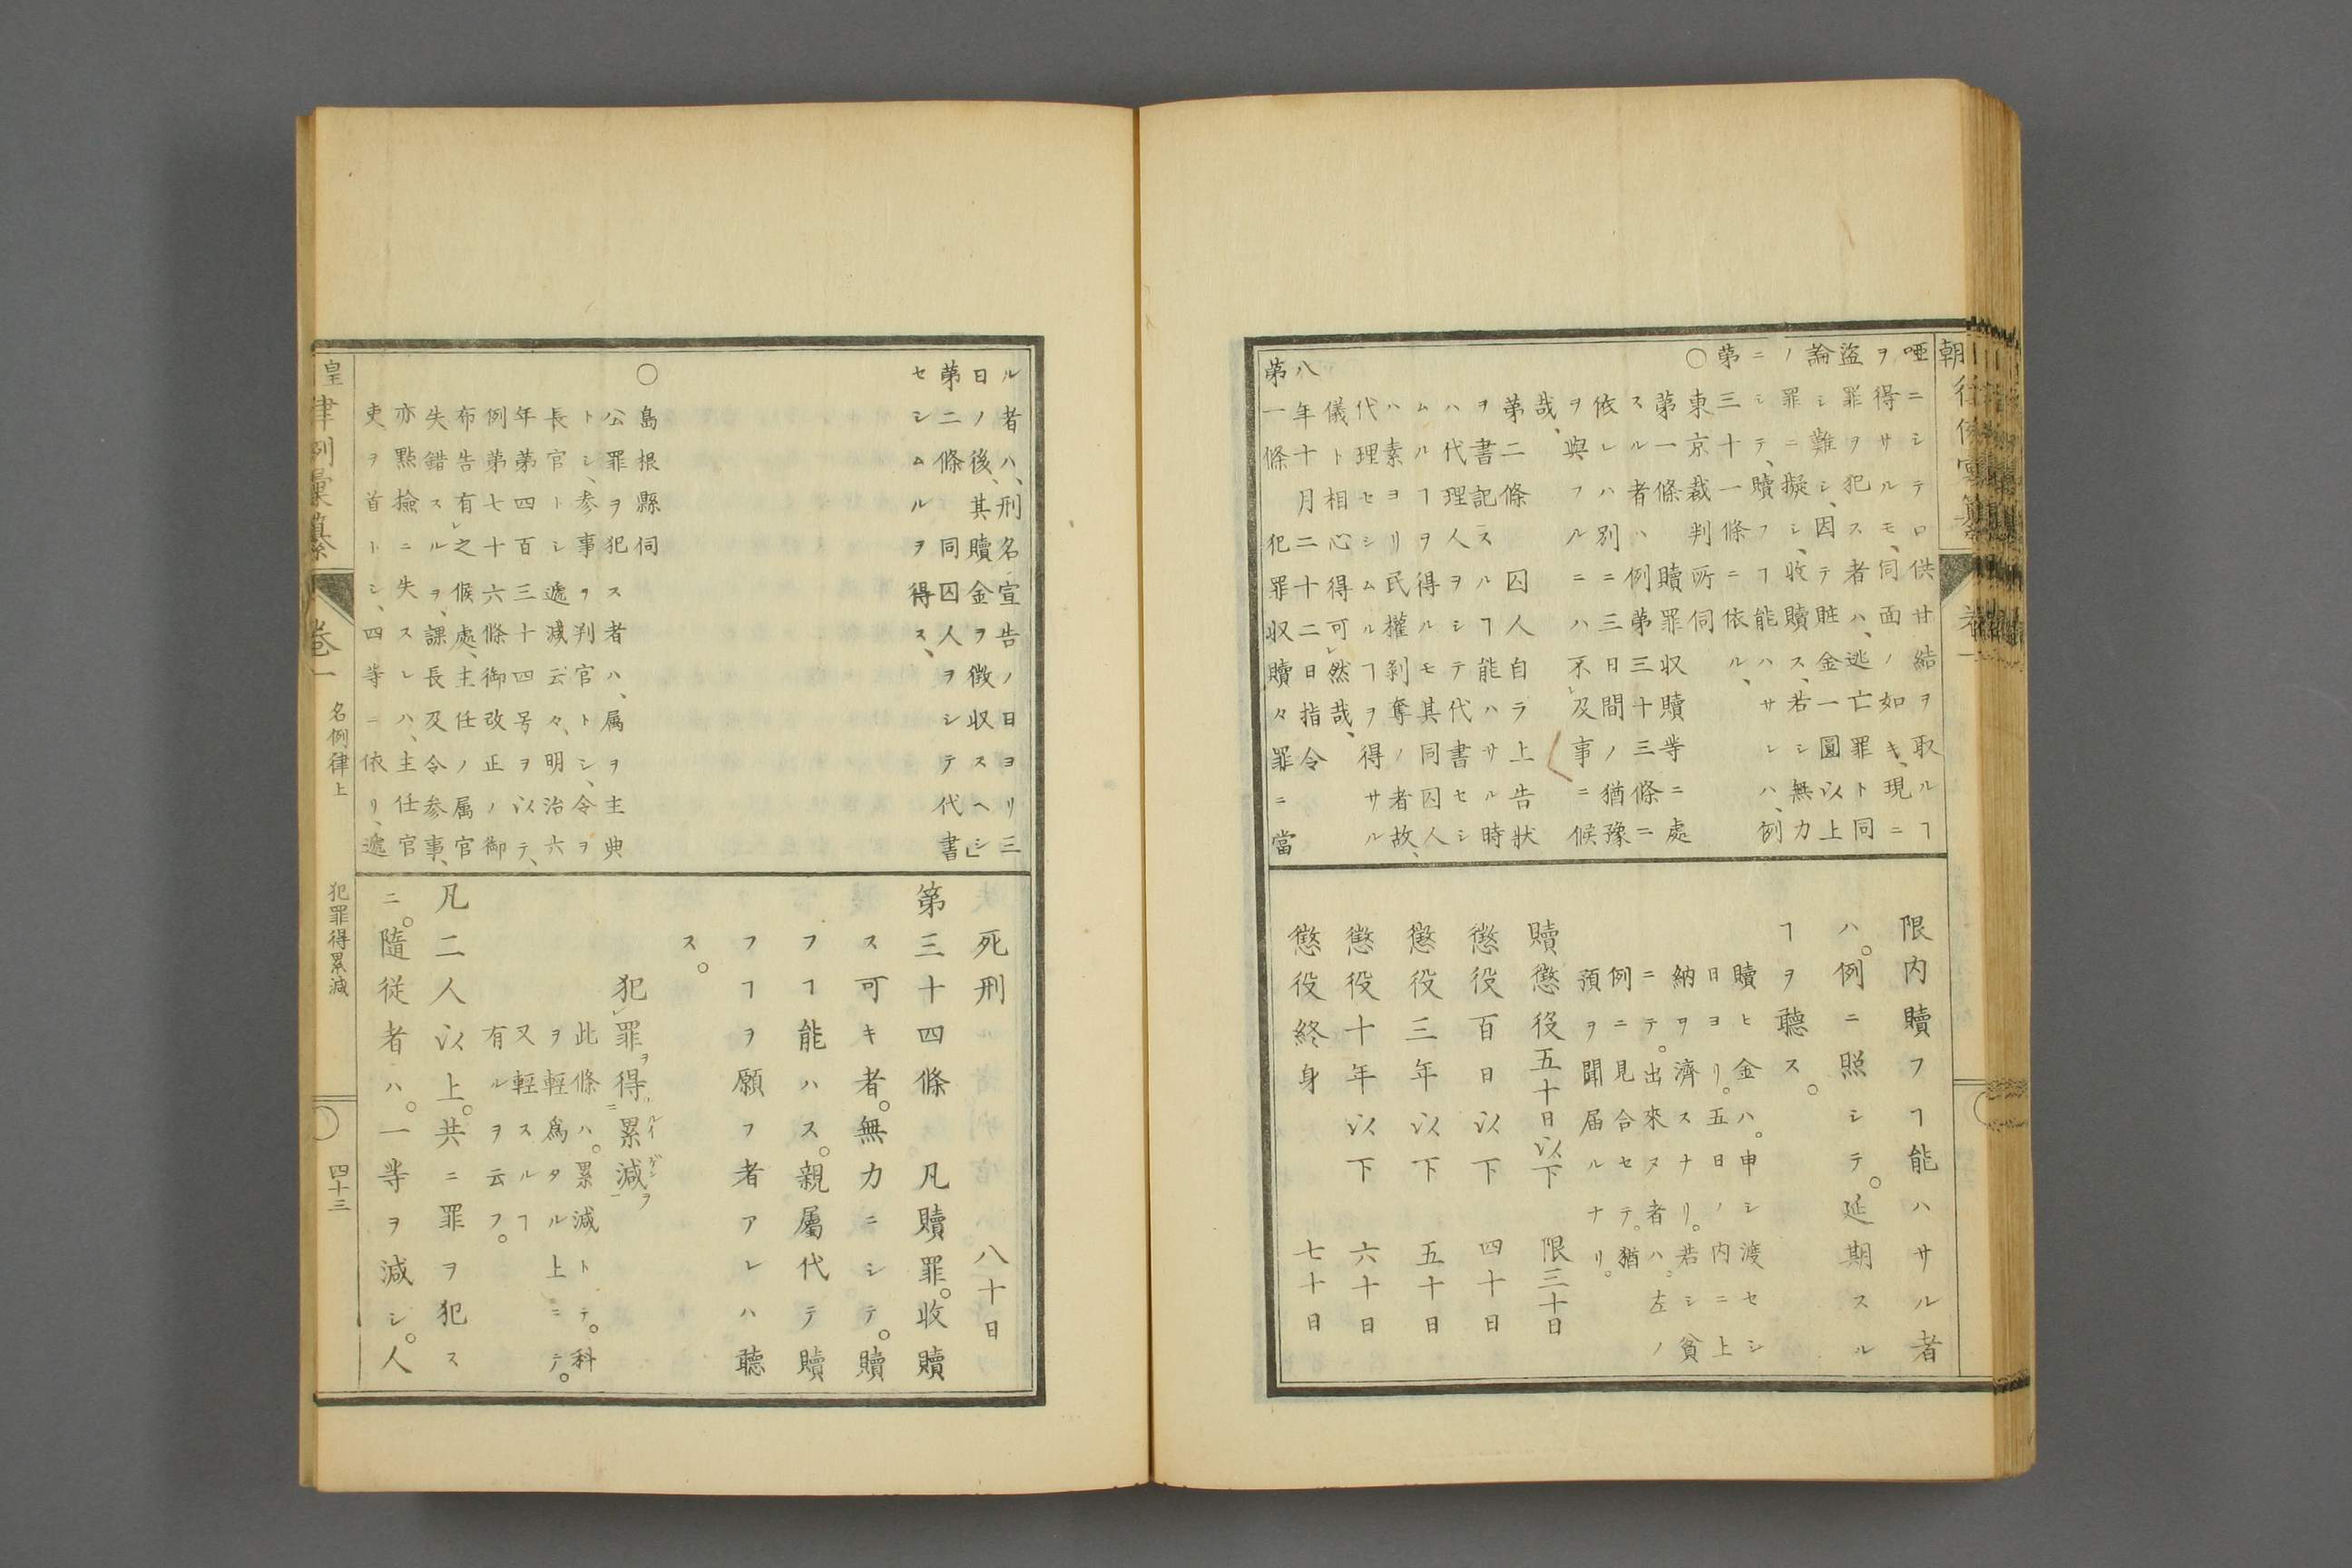 唖ニシテ口供甘結ヲ取ルヿ
ヲ得サルモ、伺面ノ如キ、現ニ
盗罪ヲ犯ス者ハ、逃亡罪ト同
論シ難シ、因テ賍金一圓以上
ノ罪ニ擬シ、收贖ス、若シ無力
ニシテ、贖フヿ能ハサレハ、例
第三十一條ニ依ル、
○東京裁判所伺
第一條 贖罪収贖等ニ處
スル者ハ例第三十三條ニ
依レハ別ニ三日間ノ猶豫
ヲ與フルニハ不レ及事ニ候
哉、
第二條 囚人自ラ上告狀
ヲ書記スルヿ能ハサル時
ハ代理人ヲシテ代書セシ
ムルヿヲ得ルモ其同囚人
ハ素ヨリ民權剥奪ノ者故、
代理セシムルヿヲ得サル
儀ト相心得可レ然哉、
八年十月二十二日指令
第一條 犯罪収贖々罪ニ當
限内贖フヿ能ハサル者
ハ。例ニ照シテ。延期スル
ヿヲ聽ス。
贖ヒ金ハ。申シ渡セシ
日ヨリ。五日ノ内ニ上
納ヲ濟スナリ。若シ貧
ニテ。出來ヌ者ハ。左ノ
例ニ見合セテ。猶
預ヲ聞届ルナリ。
贖懲役五十日以下 限三十日
懲役百日以下 四十日
懲役三年以下 五十日
懲役十年以下 六十日
懲役終身 七十日
ル者ハ、刑名宣告ノ日ヨリ三
日ノ後、其贖金ヲ徴収スヘシ」
第二條 同囚人ヲシテ代書
セシムルヲ得ス、
○島根縣伺
公罪ヲ犯ス者ハ、属ヲ主典
トシ、参事ヲ判官トシ、令ヲ
長官トシ遞減云々、明治六
年第四百三十四号ヲ以テ、
例第七十六條御改正ノ御
布告有レ之候處、主任ノ属官
失錯スルヲ、課長及令参事、
亦點撿ニ失スレハ、主任官
吏ヲ首トシ、四等ニ依リ、遞
死刑 八十日
第三十四條 凡贖罪。收贖
ス可キ者。無力ニシテ。贖
フヿ能ハス。親屬代テ贖
フヿヲ願フ者アレハ聽
ス。
犯レ罪ヲ得ニ累減ルイゲンヲ一
此條ハ。累減トテ。科
ヲ輕爲タル上ニテ。
又輕スルヿ
有ルヲ云フ。
凡二人以上。共ニ罪ヲ犯ス
ニ。隨従者ハ。一等ヲ減シ。人
皇律例彙纂 卷一 名例律上 犯罪得累減 四十三